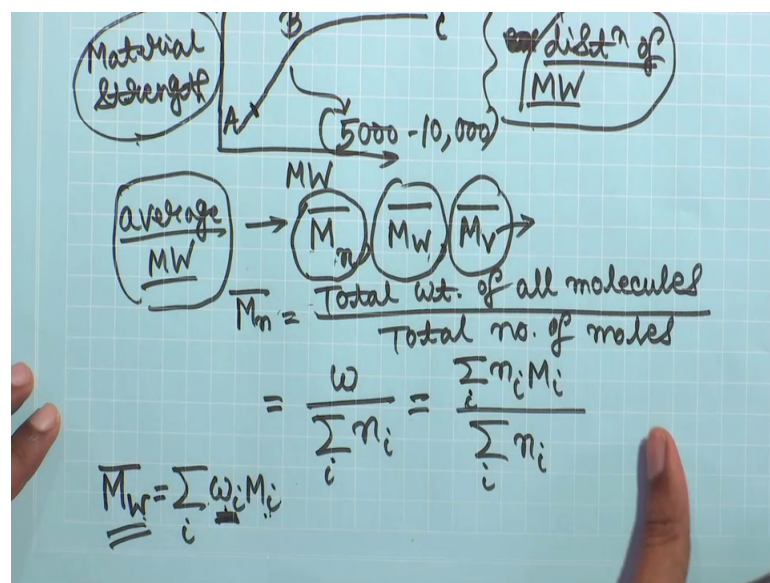 Material
Strength
A
B
C
(5000-10,000)
MW
distⁿ of
MW
average
MW
→ M̅n, M̅w, M̅v →
M̅n = Total wt. of all molecules / Total no. of moles
= w / Σi ni = Σi niMi / Σi ni
M̅w = Σi wiMi